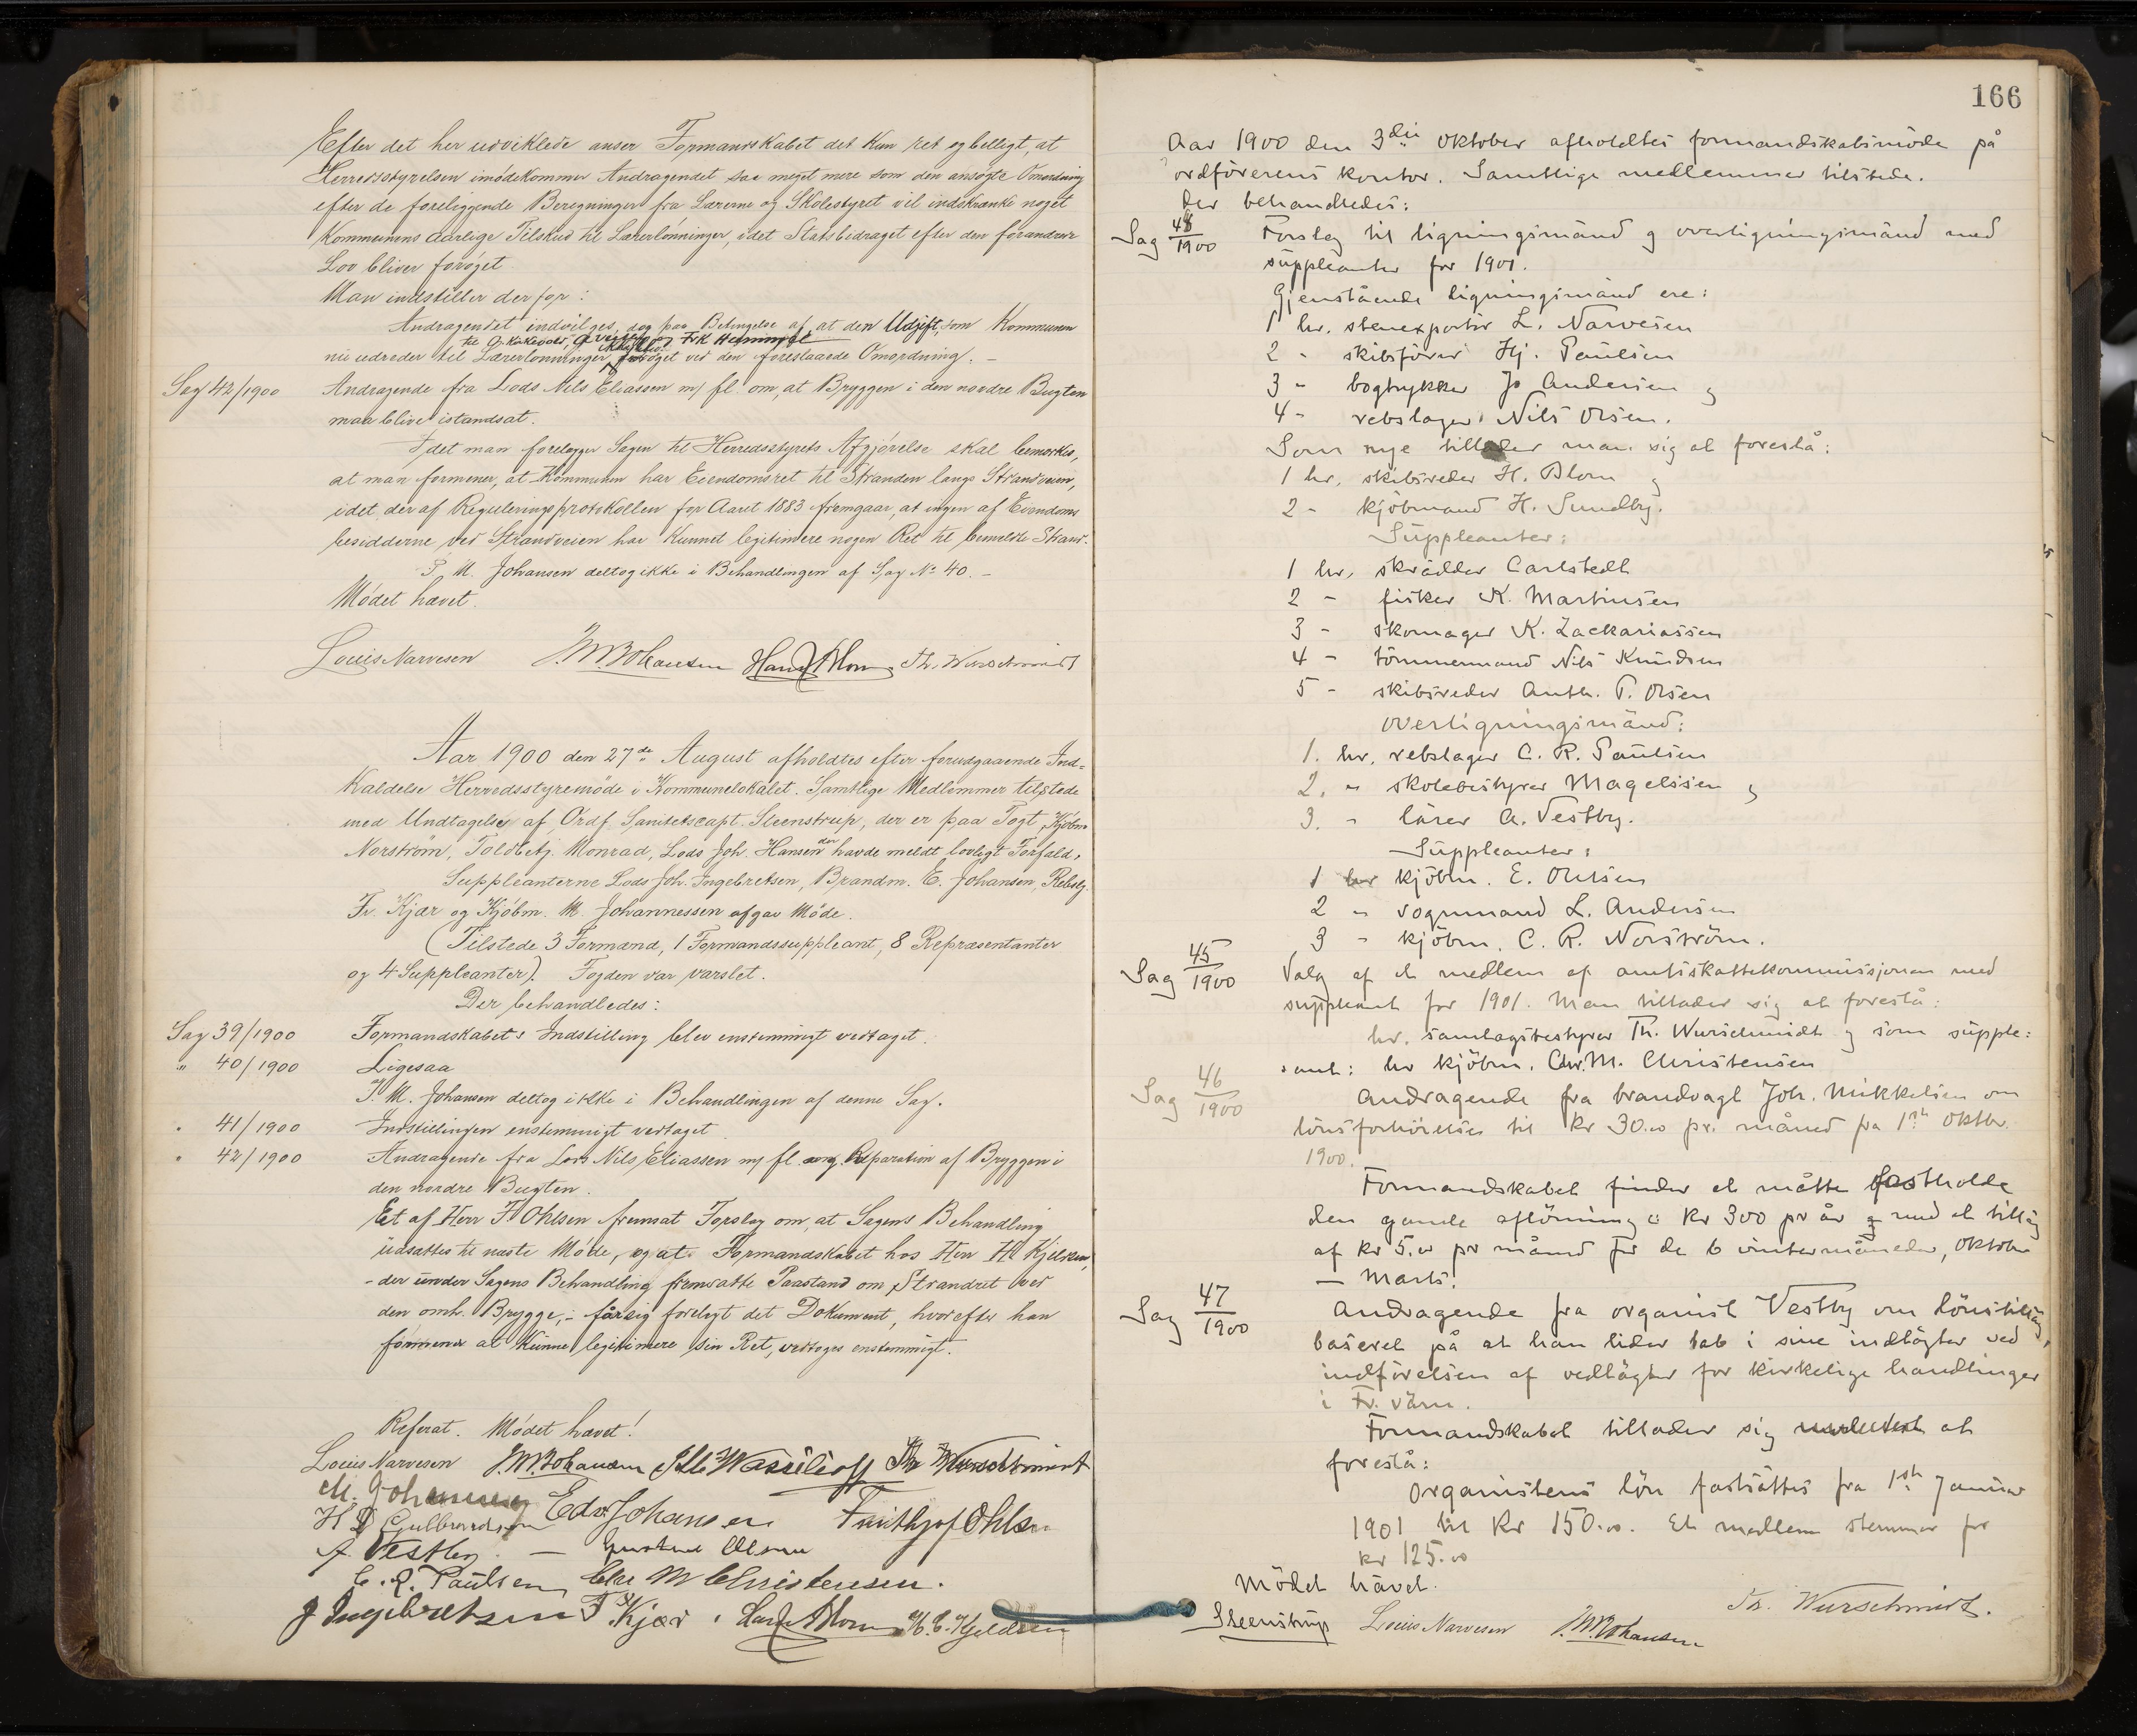 Efter det her udviklede anser Formandskabet det kun ret og belligt, at
Herredsstyrelsen imødekommer Andragendet saa meget mere som den ansøgte Omordning
efter de foreliggende Beregninger fra Lærerne og Skolestyret vil indskrænke noget
Kommunens aarlige Tilskud til Lærerlønninger, idet Statsbidraget efter den forandrede
Lov bliver forøget.
Man indstiller derfor:
Andragendet indvilges, dog paa Betingelse af, at den Udgift, som Kommunen
til og Frk Henningse
nu udreder til Lærerlønninger, ikke bliver forøget ved den foreslaaede Omordning. –
Sag 42/1900 Andragende fra Lods Nils Eliassen m/ fl. om, at Bryggen i den nordre Bugten
maa blive istandsat.
Idet man forelægger Sagen til Herredsstyrets Afgjørelse skal bemærkes,
at man formener, at Kommunen har Eiendomsret til Stranden langs Strandveien,
idet der af Reguleringsprotokollen for Aaret 1883 fremgaar, at ingen af Eiendoms
besidderne ved Strandveien har kunnet legitimere nogen Ret til bemeldte Strand.
P. M. Johansen deltog ikke i Behandlingen af Sag No 40. –
Mødet hævet.
Louis Narvesen P.M. Johansen Hans Blom Th. Wurschmidt
Aar 1900 den 27de August afholdtes efter forudgaaende Ind=
kaldelse Herredsstyremøde i Kommunelokalet. Samtlige Medlemmer tilstede
med Undtagelse af Ordf. Sanitetscapt. Steenstrup, der er paa Togt, Kjøbm
Norstrøm, Toldbetj. Monrad, Lods Joh. Hansen der havde meldt lovligt Forfald,
Suppleanterne Lods Joh. Ingebretsen, Brandm. E. Johansen, Rebslg.
Fr. Kjær og Kjøbm. M. Johannessen afgav Møde.
(Tilstede 3 Formænd, 1 Formandssuppleant, 8 Repræsentanter
og 4 Suppleanter). Fogden var varslet.
Der behandledes:
Sag 39/1900 Formandskabets Indstilling blev enstemmigt vedtaget.
" 40/1900 Ligesaa
P. M. Johansen deltog ikke i Behandlingen af denne Sag.
" 41/1900 Indstillingen enstemmigt vedtaget
" 42/1900 Andragende fra Lods Nils Eliassen m/ fl. ang. Reparation af Bryggen i
den nordre Bugten.
Et af Herr F. Ohlsen fremsat Forslag om, at Sagens Behandling
udsattes til næste Møde, og at Formandskabet hos Herr H. Kjelsen,
– der under Sagens Behandling fremsatte Paastand om Strandret ved
den omh. Brygge, – får sig forelagt det Dokument, hvorefter han
formener at kunne legitimere sin Ret, vedtoges enstemmigt.
Referat. Mødet hævet!
Louis Narvesen P.M. Johansen Th. Wurschmidt
M. Johannesen Edv. Johansen Frithjof Ohlsen
H D Gulbrandsen
A Vestby. – Gustav Olsen
C. R. Paulsen Chr M Christensen.
J Ingebretsen F Kjær. Hans Blom H. C. Kjeldsen
166
Aar 1900 den 3die oktober afholdtes formandskabsmöde på
ordförerens kontor. Samtlige medlemmer tilstede.
Der behandledes:
Sag 48/1900 Forslag til ligningsmänd og overligningsmänd med
suppleanter for 1901.
Gjenstående ligningsmänd ere:
1 hr. stenexportör L. Narvesen
2 - skibsförer Hj. Paulsen
3 - bogtrykker Jo Andersen og
4 - rebslager Nils Olsen.
Som nye tillader man sig at foreslå:
1 hr. skibsreder H. Blom og
2 - kjöbmand H. Sundby.
Suppleanter:
1 hr. skrädder Carlstedt
2 - fisker K. Martinsen
3 - skomager K. Zackariassen
4 - tömmermand Nils Knudsen
5 - skibsreder Anth. T. Olsen
overligningsmänd:
1. hr. rebslager C. R. Paulsen
2. " skolebestyrer Magelssen og
3. - lärer A. Vestby.
Suppleanter:
1 hr kjöbm. E. Ohlsen
2 " vognmand L. Andersen
3 - kjöbm. C. R. Norström.
Sag 45/1900 Valg af et medlem af amtsskattekommissjonen med
suppleant for 1901. Man tillader sig at foreslå:
hr. samlagsbestyrer Th. Wurschmidt og som supple:
ant: hr kjöbm. Chr. M. Christensen
Sag 46/1900 Andragende fra brandvagt Joh. Mikkelsen om
lönsforhöielse til kr 30.00 pr. måned fra 1st oktbr.
1900.
Formandskabet finder at måtte fastholde
den gamle aflönning à kr 300 pr år og med et tilläg
af kr 5.00 pr måned for de 6 vintermåneder, oktober
– Marts.
Sag 47/1900 Andragende fra organist Vestby om lönstilläg,
baseret på at han lider tab i sine indtägter ved
indförelsen af vedtägter for kirkelige handlinger
i Fr. värn.
Formandskabet tillader sig at
foreslå:
Organistens lön fastsättes fra 1st Januar
1901 til kr 150.00. Et medlem stemmer for
kr 125.00
Mödet hävet.
Steenstrup Louis Narvesen P.M. Johansen Th. Wurschmidt.